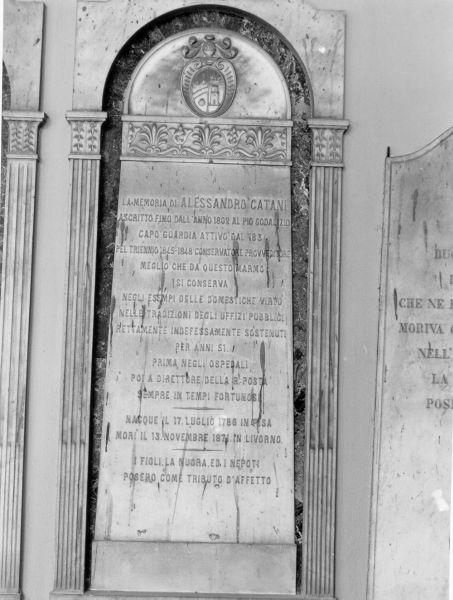 LA MEMORIA DI ALESSANDRO CATANI
ASCRITTO FINO DALL'ANNO 1802 AL PIO SODALIZIO
CAPO GUARDIA ATTIVO DAL 183
PEL TRIENNIO 1845-1848 CONSERVATORE PROVVEDITORE
MEGLIO CHE DA QUESTO MARMO
SI CONSERVA
NEGLI ESEMPI DELLE DOMESTICHE VIRTÙ
NELLE TRADIZIONI DEGLI UFFIZI PUBBLICI
RETTAMENTE INDEFESSAMENTE SOSTENUTI
PER ANNI 51.
PRIMA NEGLI OSPEDALI
POI A DIRETTORE DELLA R. POSTA
SEMPRE IN TEMPI FORTUNOSI
NACQUE IL 17. LUGLIO 1786 IN PISA
MORÌ IL 13. NOVEMBRE 1871. IN LIVORNO.
I FIGLI, LA NUORA, ED I NEPOTI
POSERO COME TRIBUTO D'AFFETTO
CHE NE
MORIVA
NELL'
LA
POS